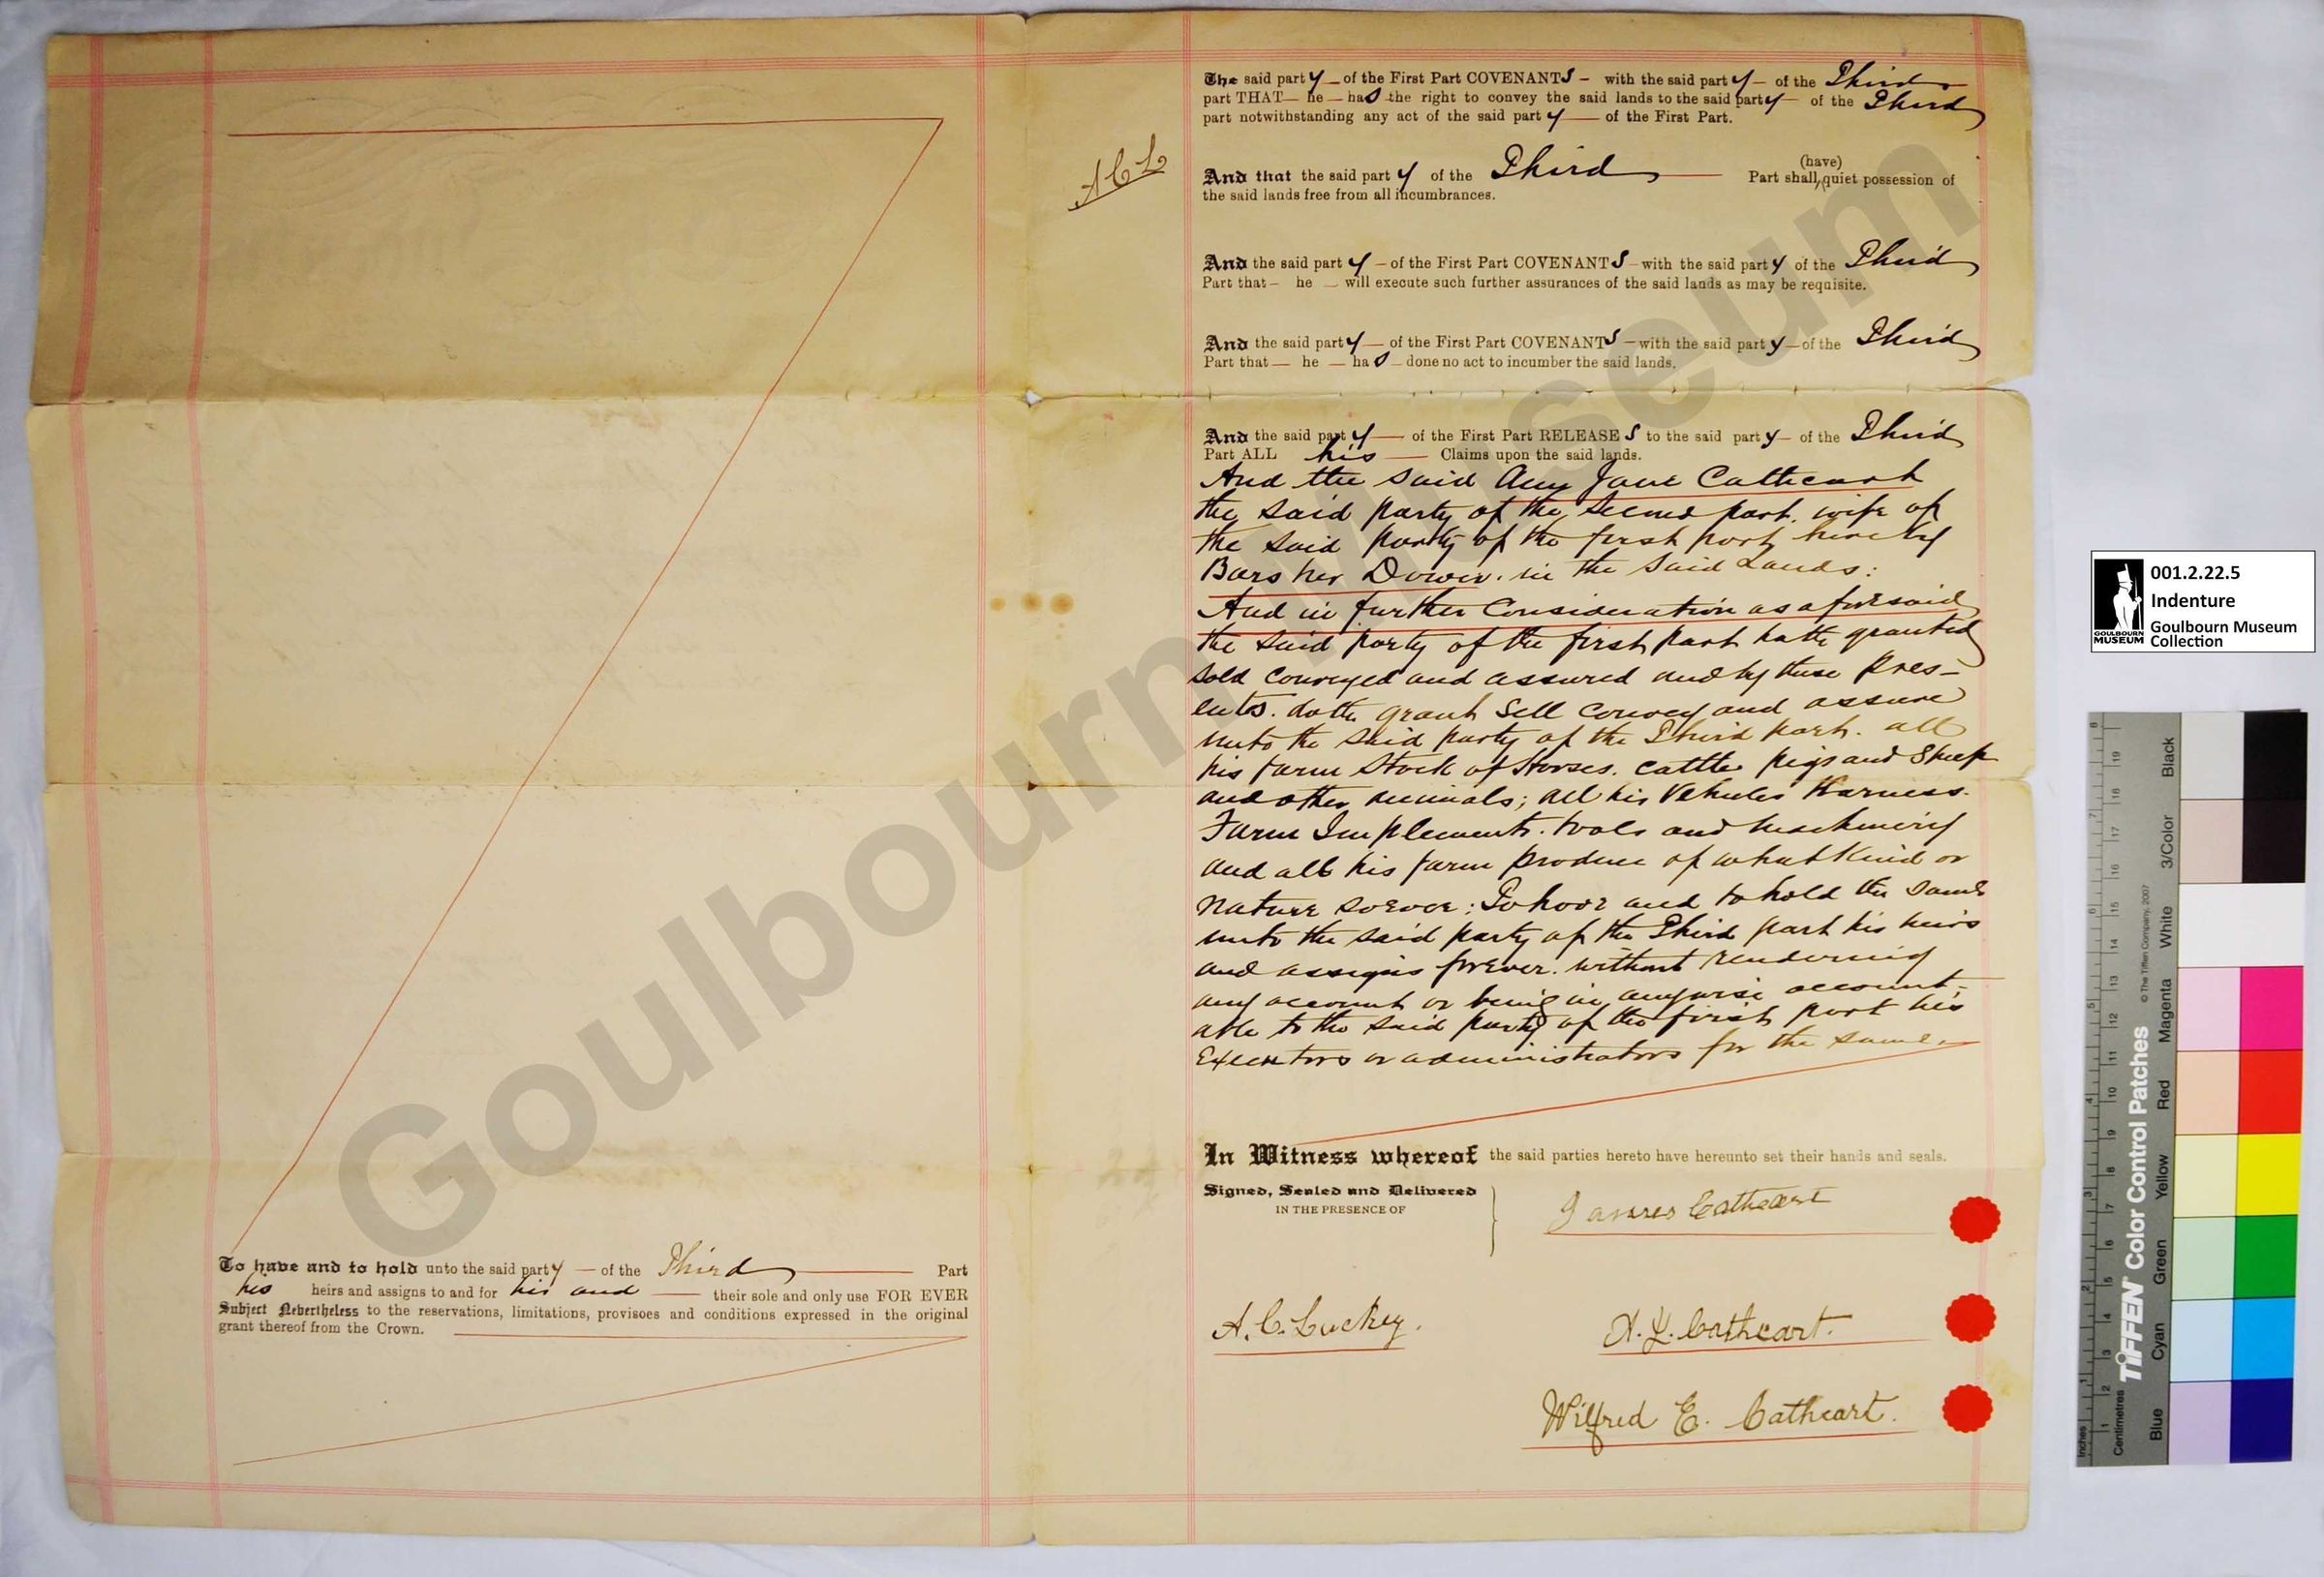 To have and to hold unto the said party — of the Third Part
his heirs and assigns to and for his and their sole and only use FOR EVER
Subject Nevertheless to the reservations, limitations, provisoes and conditions expressed in the original
grant thereof from the Crown.
The said party of the First Part COVENANTS – with the said party – of the Third
part THAT— he — has the right to convey the said lands to the said party — of the Third
part notwithstanding any act of the said party — of the First Part.
(have)
And that the said party of the Third — Part shall, quiet possession of
the said lands free from all incumbrances.
And the said party – of the First Part COVENANTS – with the said party of the Third
Part that – he – will execute such further assurances of the said lands as may be requisite.
And the said party — of the First Part COVENANTS – with the said party – of the Third
Part that — he — has – done no act to incumber the said lands.
And the said party — of the First Part RELEASES to the said party – of the Third
Part ALL his — Claims upon the said lands.
And the said Jane Cathcart
the said party of the second part, wife of
the said party of the first part, hereby
Bars her Dower. in the said Lands:
And in further Consideration as aforesaid
the said party of the first part hath granted
sold conveyed and assured and by these Pres-
ents. doth grant sell convey and assure
unto the said party of the Third part. all
his farm Stock of Horses. cattle pigs and Sheep
and other animals; all his Vehicles Harness.
Farm Implements. tools and Machinery
and all his farm produce of what Kind or
Nature soever; To have and to hold the same
unto the said party of the Third part his heirs
and assigns forever. without rendering
any account or being in anywise account-
able to the said party of the first part his
Executors or administrators for the same.
In Witness whereof the said parties hereto have hereunto set their hands and seals.
Signed, Sealed and Delivered
IN THE PRESENCE OF
James Cathcart
A. C. Luckey.
Cathcart.
Wilfred E. Cathcart.
Goulbourn Museum
GOULBOURN
MUSEUM
001.2.22.5
Indenture
Goulbourn Museum
Collection
TIFFEN Color Control Patches
© The Tiffen Company, 2007
Inches
Centimetres
Blue
Cyan
Green
Yellow
Red
Magenta
White
3/Color
Black